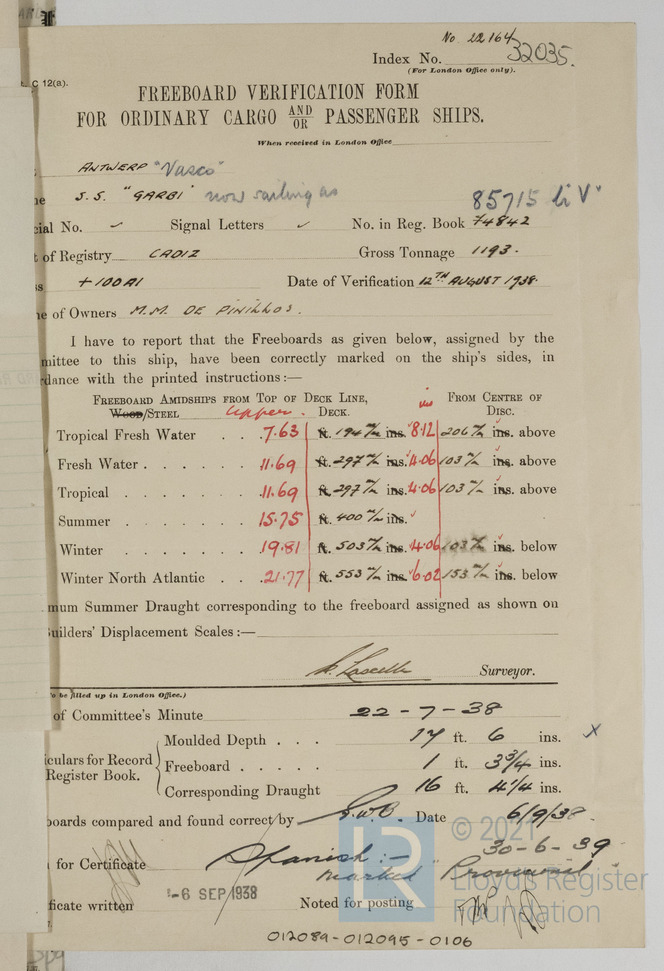 No. 22164
Index No. 32035.
(For London Office only).
C 12(a).
FREEBOARD VERIFICATION FORM
FOR ORDINARY CARGO AND/OR PASSENGER SHIPS.
When received in London Office
ANTWERP "Vasco"
S.S. "GARBI" now sailing as
85715 li V"
cial No. ✓ Signal Letters ✓ No. in Reg. Book 74842
t of Registry CADIZ Gross Tonnage 1193.
ss +100A1 Date of Verification 12TH AUGUST 1938.
e of Owners M.M. DE PINILLOS.
I have to report that the Freeboards as given below, assigned by the
mittee to this ship, have been correctly marked on the ship's sides, in
dance with the printed instructions:—
FREEBOARD AMIDSHIPS FROM TOP OF DECK LINE, ins FROM CENTRE OF
WOOD/STEEL Upper. DECK. DISC.
Tropical Fresh Water . . . 7.63 ft. 194 m/m ins. 8.12 206 m/m ins. above
Fresh Water . . . . . 11.69 ft. 297 m/m ins. 4.06 103 m/m ins. above
Tropical . . . . . 11.69 ft. 297 m/m ins. 4.06 103 m/m ins. above
Summer . . . . . . 15.75 ft. 400 m/m ins.
Winter . . . . . . 19.81 ft. 503 m/m ins. 4.06 103 m/m ins. below
Winter North Atlantic . . . 21.77 ft. 553 m/m ins. 6.02 153 m/m ins. below
mum Summer Draught corresponding to the freeboard assigned as shown on
Builders' Displacement Scales:—
Surveyor.
to be filled up in London Office.)
of Committee's Minute 22-7-38
Moulded Depth . . . 17 ft. 6 ins. x
iculars for Record
Register Book.
Freeboard . . . . . 1 ft. 3 3/4 ins.
Corresponding Draught 16 ft. 4 1/4 ins.
boards compared and found correct by G.W.B. Date 6/9/38
30-6-39
for Certificate Spanish :- marked "Provisional"
ficate written -6 SEP 1938 Noted for posting
012089-012095-0106
LR
© 2021
Lloyd's Register
Foundation